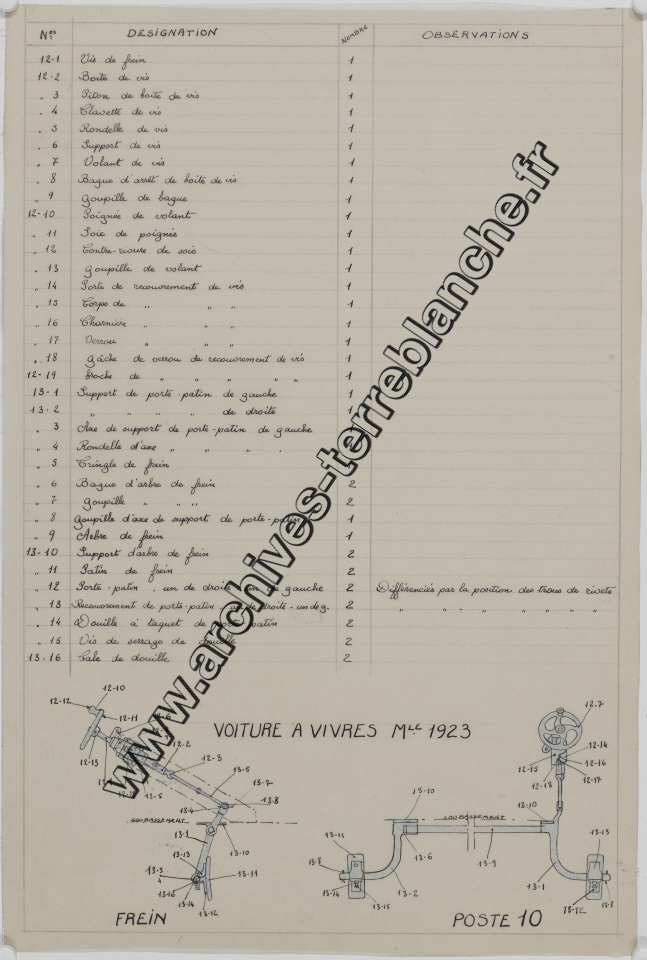 Nos DESIGNATION NOMBRE OBSERVATIONS
12-1 Vis de frein 1
12-2 Boîte de vis 1
" 3 Piton de boîte de vis 1
" 4 Clavette de vis 1
" 5 Rondelle de vis 1
" 6 Support de vis 1
" 7 Volant de vis 1
" 8 Bague d'arrêt de boîte de vis 1
" 9 Goupille de bague 1
12-10 Poignée de volant 1
" 11 Soie de poignée 1
" 12 Contre-rivure de soie 1
" 13 Goupille de volant 1
" 14 Porte de recouvrement de vis 1
" 15 Corps de " " " 1
" 16 Charnière " " " 1
" 17 Verrou " " " 1
" 18 Gâche de verrou de recouvrement de vis 1
12-19 Broche de " " " " " 1
13-1 Support de porte-patin de gauche 1
13-2 " " " " de droite 1
" 3 Axe de support de porte-patin de gauche
" 4 Rondelle d'axe " " " "
" 5 Tringle de frein
" 6 Bague d'arbre de frein 2
" 7 Goupille " " " 2
" 8 Goupille d'axe de support de porte-patin 1
" 9 Arbre de frein 1
13-10 Support d'arbre de frein 2
" 11 Patin de frein 2
" 12 Porte-patin, un de droite, un de gauche 2 Différenciés par la position des trous de rivets
" 13 Recouvrement de porte-patin - un de droite - un de g. 2 " " " " " "
" 14 Douille à taquet de porte-patin 2
" 15 Vis de serrage de douille 2
13-16 Cale de douille 2
www.archives-terreblanche.fr
VOITURE A VIVRES Mle 1923
12-10
12-12
12-11
12-6
12-13
12-2
12-3
12-5
13-5
13-7
13-8
13-4
SOUBASSEMENT
13-1
13-10
13-13
13-3
4
13-11
13-16
13-14
13-12
12-7
12-14
12-15
12-16
12-17
12-18
13-10
13-10
SOUBASSEMENT
13-11
13-13
13-6
13-9
13-8
13-14
13-15
13-2
13-1
13-12
13-8
FREIN
POSTE 10